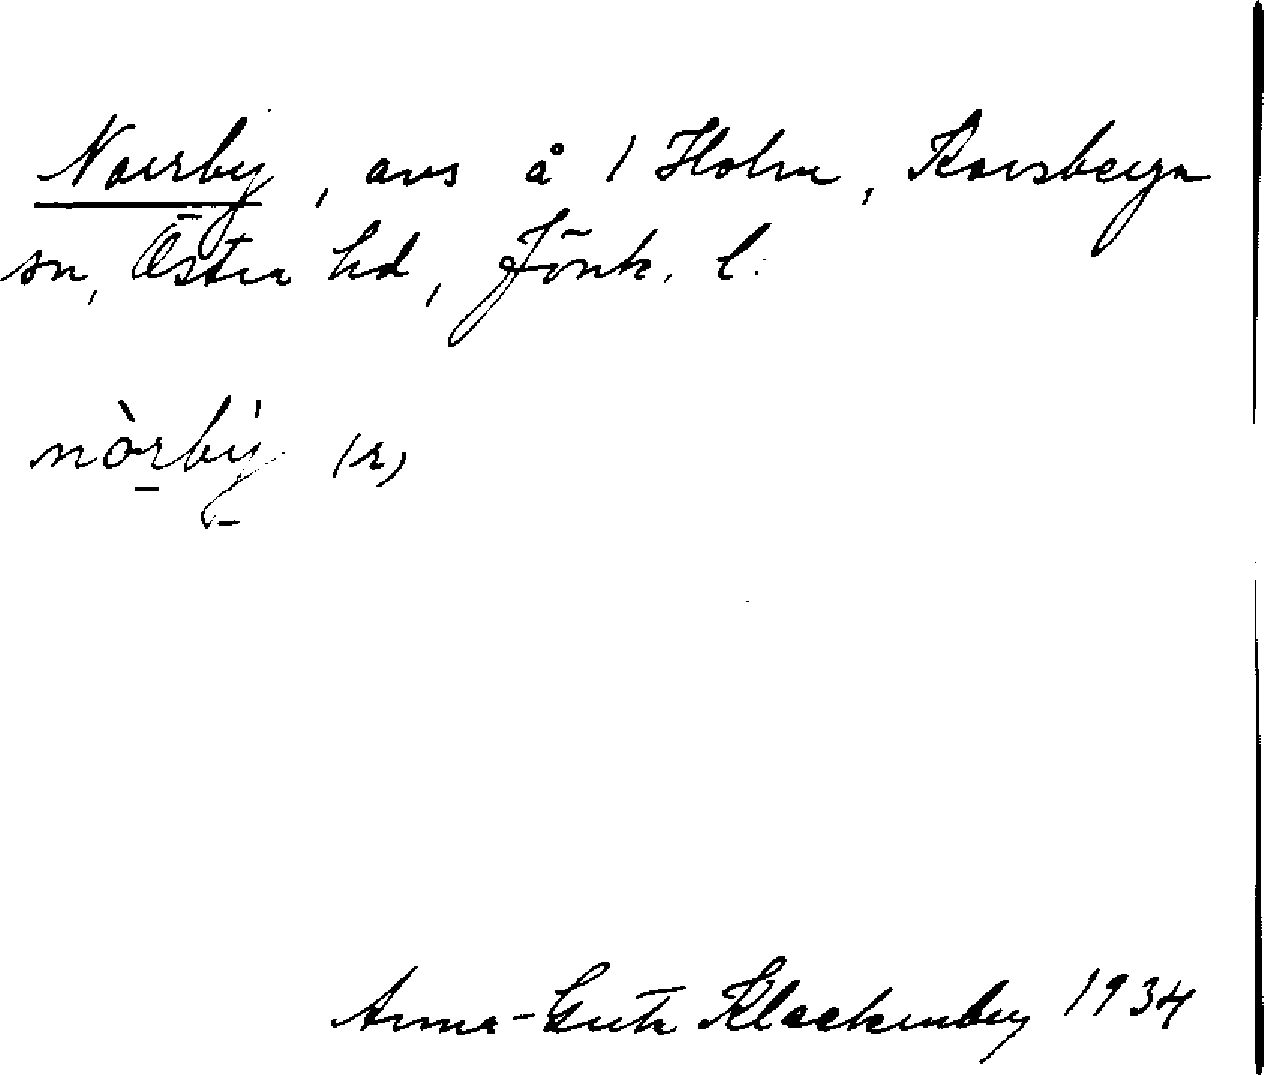 Norrby, avs å 1 Holm, Korsberga
sn, Östra hd, Jönk. l.
nòrbý (r)
Anna-Greta Klackenberg 1934